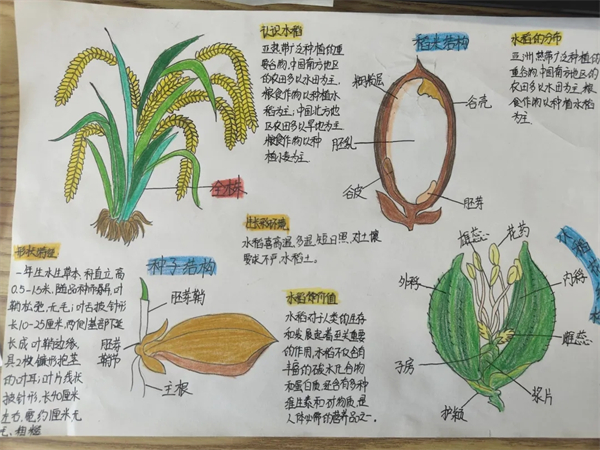 认识水稻
亚热带广泛种植的重
要谷物,中国南方地区
的农田多以水田为主,
粮食作物以种植水
稻为主;中国北方地
区农田多以旱地为主,
粮食作物以种
植小麦为主.
全株
稻米结构
糊粉层
谷壳
胚乳
谷皮
胚芽
水稻的分布
亚洲热带广泛种植的
重要谷物,中国南方地区的
农田多以水田为主,粮
食作物以种植水稻
为主
形状特征
一年生水生草本,秆直立,高
0.5-1.5米,随品种而异,叶
鞘松弛,无毛;叶舌披针形
长10-25厘米,两侧基部下延
长成叶鞘边缘,
具2枚镰形抱茎
的叶耳;叶片线状
披针形,长40厘米
左右,宽约1厘米,无
毛,粗糙
种子结构
胚芽鞘
胚芽
鞘节
主根
生长环境
水稻喜高温,多湿,短日照,对土壤
要求不严,水稻土。
水稻的价值
水稻对于人类的生存
和发展起着至关重要
的作用,水稻不仅含有
丰富的碳水化合物
和蛋白质,还含有多种
维生素和矿物质,是
人体必需的营养品之一.
雄蕊
花药
外稃
内稃
雌蕊
子房
浆片
护颖
水稻